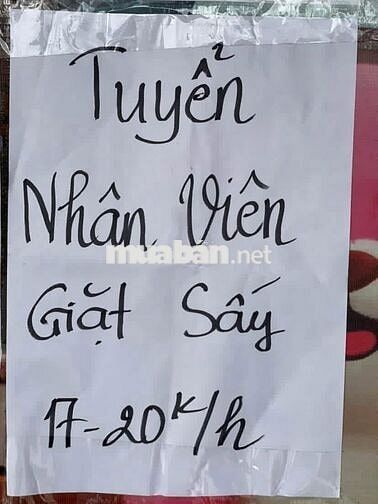 Tuyển
Nhân Viên
muaban.net
Giặt Sấy
17-20K/h